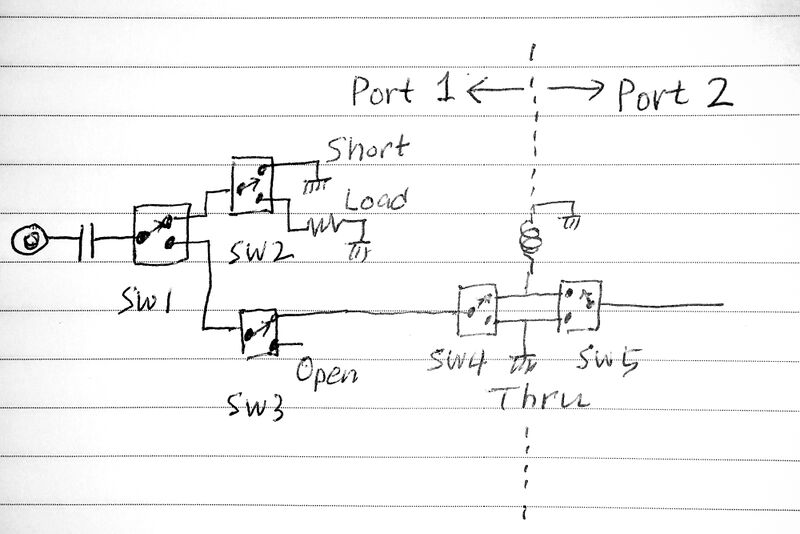 Port 1 ← → Port 2
Short
Load
SW2
SW1
SW4 SW5
Open
Thru
SW3